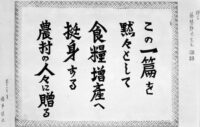 この一篇を
黙々として
食糧増産へ
挺身する
農村の人々に贈る